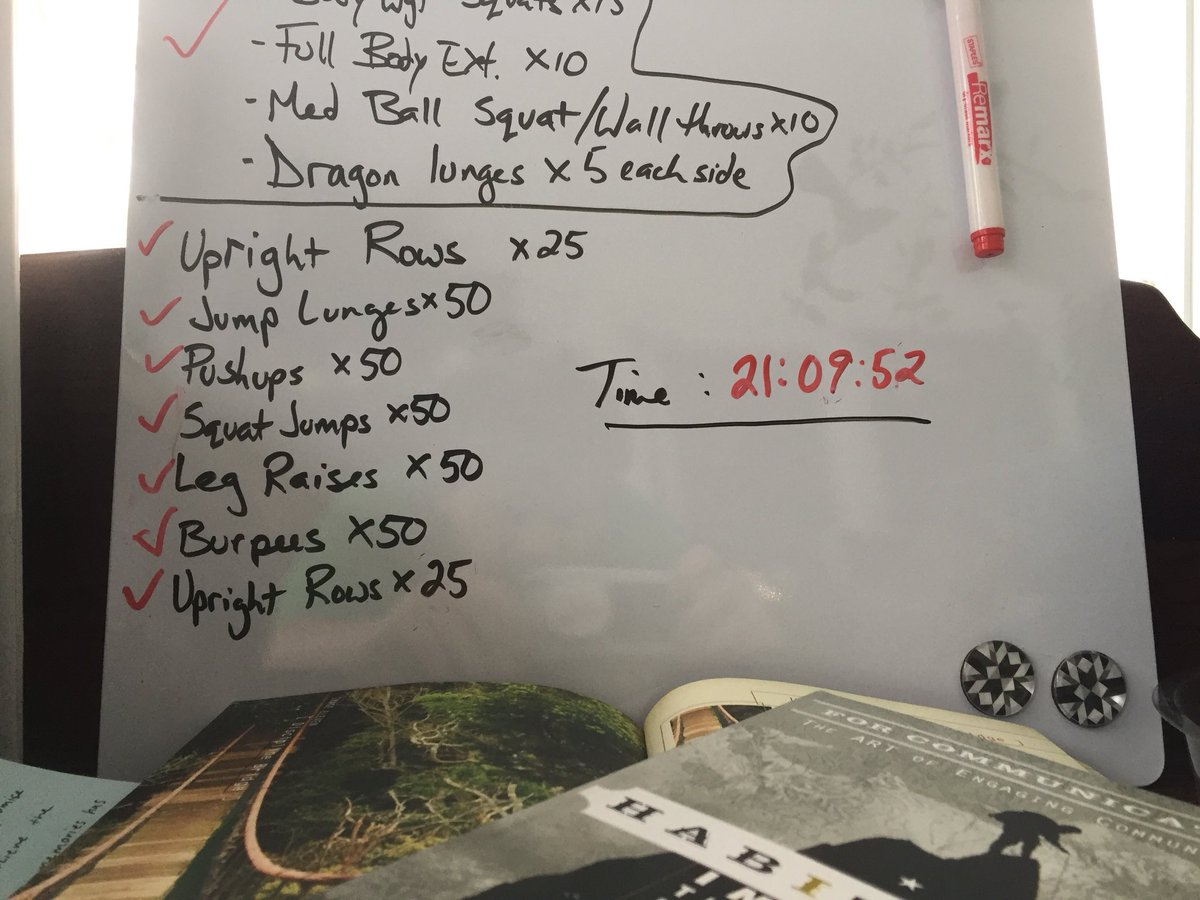 Body Wgt Squats x15
- Full Body Ext. x10
- Med Ball Squat/Wall throws x10
- Dragon lunges x 5 each side
✓ Upright Rows x25
✓ Jump Lunges x50
✓ Pushups x50
✓ Squat Jumps x50
✓ Leg Raises x50
✓ Burpees x50
✓ Upright Rows x25
Time : 21:09:52
STAPLES
Remarx
FOR COMMUNICA
THE ART OF ENGAGING COMMUN
HABI
IN